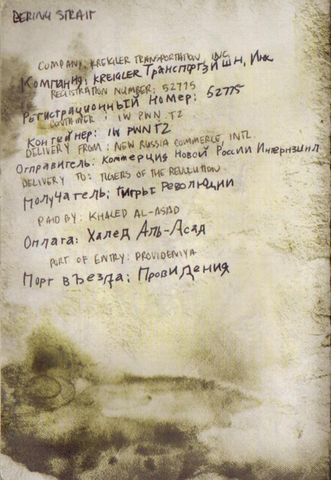 BERING STRAIT
COMPANY: KREIGLER TRANSPORTATION, INC.
Компания: KREIGLER Транспортэйшн, Инк.
REGISTRATION NUMBER: 52775
Регистрационный номер: 52775
CONTAINER: IW PWN TZ
Контейнер: IW PWNTZ
DELIVERY FROM: NEW RUSSIA COMMERCE, INTL.
Отправитель: Коммерция Новой России Интернэшнл
DELIVERY TO: TIGERS OF THE REVOLUTION.
Получатель: Тигры Революции
PAID BY: KHALED AL-ASAD
Оплата: Халед Аль-Асад
PORT OF ENTRY: PROVIDENIYA
Порт въезда: Провидения